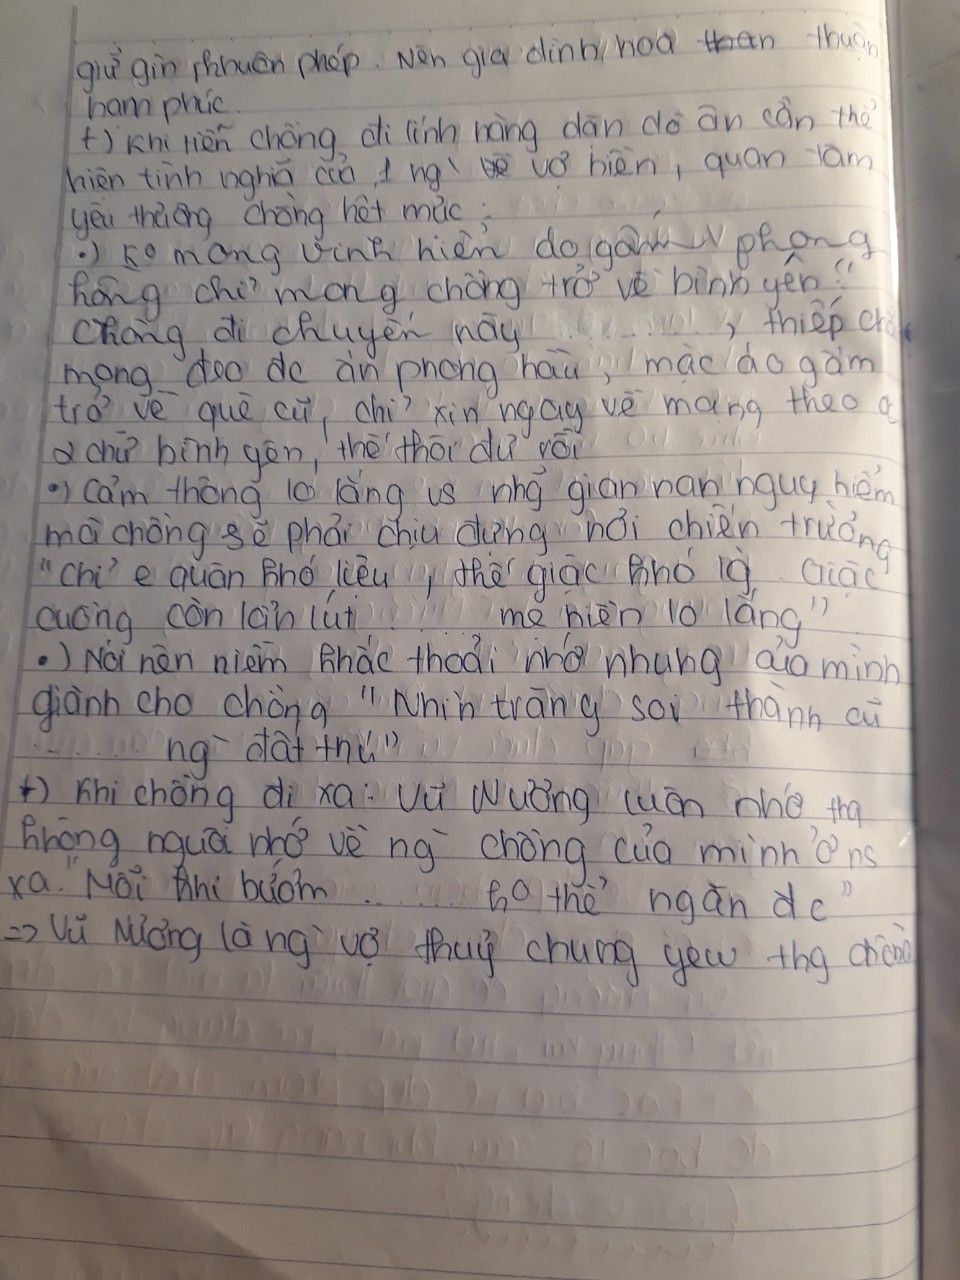 giữ gìn khuôn phép. Nên gia đình hoà thuận
hạm phúc.
+) Khi tiễn chồng đi lính nàng dặn dò ân cần thể
hiện tình nghĩa của 1 ng` vợ hiền, quan tâm
yêu thương chồng hết mực:
•) ko mong vinh hiển do gánh phong
hông chỉ mong chồng trở về bình yên: "
Chàng đi chuyến này ........., thiếp chả
mong đeo dc ấn phong hầu, mặc áo gấm
trở về quê cũ, chỉ xin ngày về mang theo đc
2 chữ bình yên, thế thôi đủ rồi
•) Cảm thông lo lắng vs nhg gian nan nguy hiểm
mà chồng sẽ phải chịu đựng nơi chiến trường
"Chỉ e quân khó liệu, thế giặc khó lg. Giặc
cuồng còn lẩn lút ........ mẹ hiền lo lắng"
•) Nói nên niềm khắc thoải nhớ nhung của mình
giành cho chồng "Nhìn trăng soi thành cũ
........ ng` đất thú"
+) Khi chồng đi xa: Vũ Nương luôn nhớ thg
không nguôi nhớ về ng` chồng của mình ở ns
xa. "Mỗi khi bướm ........ ko thể ngăn dc"
=> Vũ Nương là ng` vợ thuỷ chung yew thg chồng